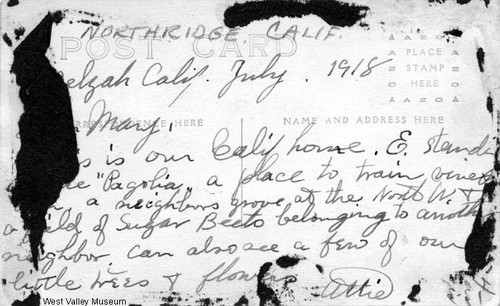 NORTHRIDGE CALIF.
POST CARD
elzah Calif. July. 1918
PLACE
STAMP
HERE
RRESPONDENCE HERE
NAME AND ADDRESS HERE
Mary,
s is our Calif home. E. stands
"Pagolia" a place to train vines
a neighbors grove at the North W. +
a field of Sugar Beets belonging to anoth
neighbor. Can also see a few of our
little trees + flowers. Attie
West Valley Museum